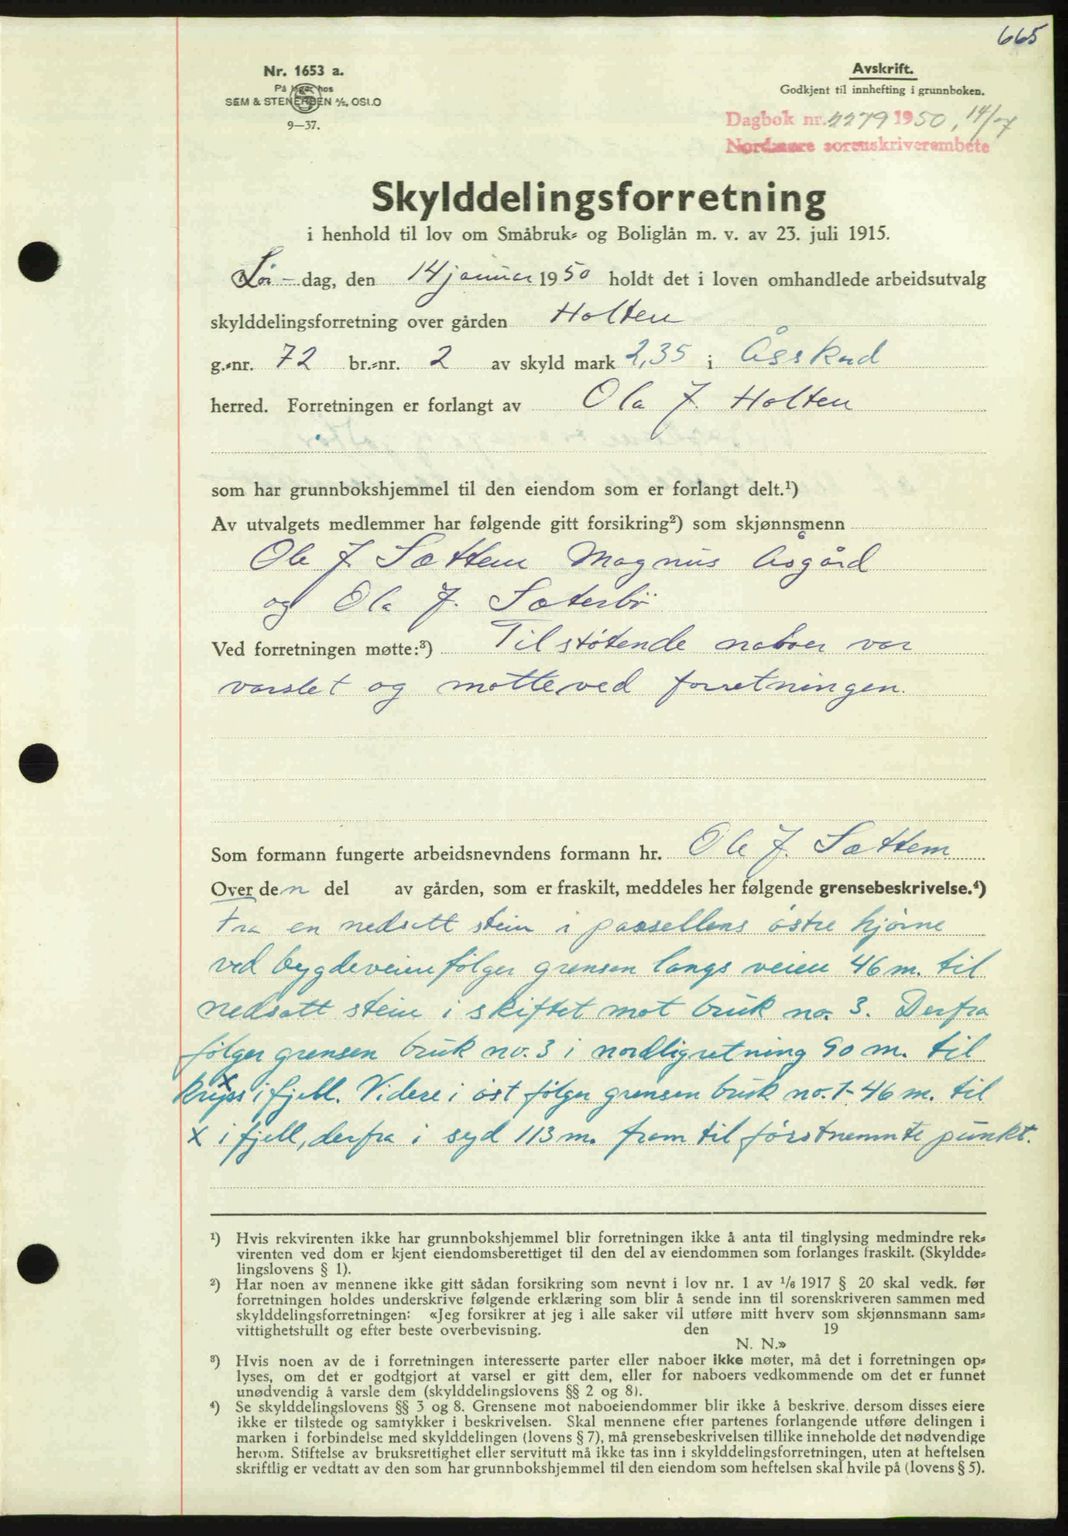 665
Nr. 1653 a.
På lager hos
SEM & STENERSEN A/S, OSLO
9—37.
Avskrift.
Godkjent til innhefting i grunnboken.
Dagbok nr. 2279 1950, 14/7
Nordmøre sorenskriverembete
Skylddelingsforretning
i henhold til lov om Småbruk- og Boliglån m. v. av 23. juli 1915.
Lør-dag, den 14 januar 1950 holdt det i loven omhandlede arbeidsutvalg
skylddelingsforretning over gården Holten
g.-nr. 72 br.-nr. 2 av skyld mark 2,35 i Åsskard
herred. Forretningen er forlangt av Ola J. Holten
som har grunnbokshjemmel til den eiendom som er forlangt delt.¹)
Av utvalgets medlemmer har følgende gitt forsikring²) som skjønnsmenn
Ole J. Sættem Magnus Åsgård
og Ola J. Sæterbö
Ved forretningen møtte:³) Tilstötende naboer var
varslet og mötte ved forretningen.
Som formann fungerte arbeidsnevndens formann hr. Ole J. Sættem
Over den del av gården, som er fraskilt, meddeles her følgende grensebeskrivelse.⁴)
Fra en nedsatt stein i parsellens östre hjörne
ved bygdeveien fölger grensen langs veien 46 m. til
nedsatt stein i skiftet mot bruk no. 3. Derfra
fölger grensen bruk no. 3 i nordlig retning 90 m. til
kryss i fjell. Videre i öst fölger grensen bruk no. 1 - 46 m. til
x i fjell, derfra i syd 113 m. fram til förstnemnte punkt.
¹) Hvis rekvirenten ikke har grunnbokshjemmel blir forretningen ikke å anta til tinglysing medmindre rek-
virenten ved dom er kjent eiendomsberettiget til den del av eiendommen som forlanges fraskilt. (Skyldde-
lingslovens § 1).
²) Har noen av mennene ikke gitt sådan forsikring som nevnt i lov nr. 1 av 1/6 1917 § 20 skal vedk. før
forretningen holdes underskrive følgende erklæring som blir å sende inn til sorenskriveren sammen med
skylddelingsforretningen: «Jeg forsikrer at jeg i alle saker vil utføre mitt hverv som skjønnsmann sam-
vittighetsfullt og efter beste overbevisning. den 19
N. N.»
³) Hvis noen av de i forretningen interesserte parter eller naboer ikke møter, må det i forretningen op-
lyses, om det er godtgjort at varsel er gitt dem, eller for naboers vedkommende om det er funnet
unødvendig å varsle dem (skylddelingslovens §§ 2 og 8).
⁴) Se skylddelingslovens §§ 3 og 8. Grensene mot naboeiendommer blir ikke å beskrive, dersom disses eiere
ikke er tilstede og samtykker i beskrivelsen. Skal mennene efter partenes forlangende utføre delingen i
marken i forbindelse med skylddelingen (lovens § 7), må grensebeskrivelsen tillike inneholde det nødvendige
herom. Stiftelse av bruksrettighet eller servitutt må ikke tas inn i skylddelingsforretningen, uten at heftelsen
skriftlig er vedtatt av den som har grunnbokshjemmel til den eiendom som heftelsen skal hvile på (lovens § 5).